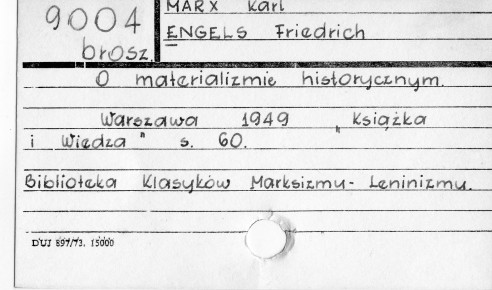 9004
brosz.
MARX Karl
ENGELS Friedrich
O materializmie historycznym.
Warszawa 1949 „Książka
i Wiedza" s. 60.
Biblioteka Klasyków Marksizmu-Leninizmu.
DUJ 897/73. 15000